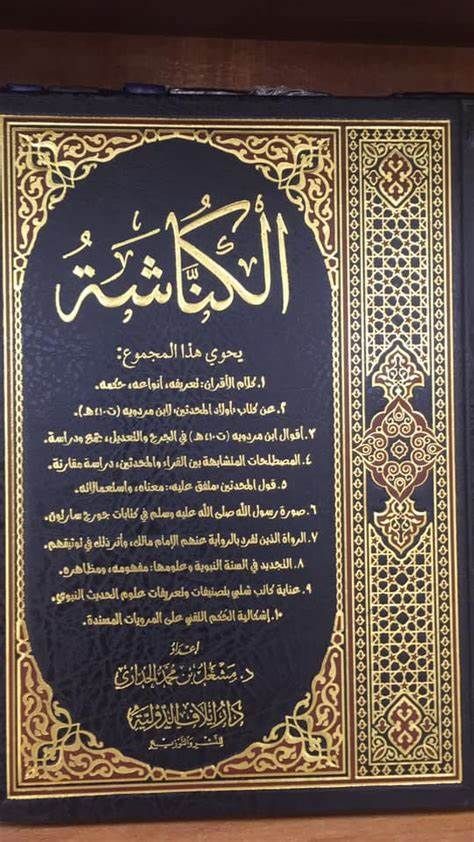 الْكُنَّاشَةُ
يحوي هذا المجموع:
١. كلام الأقران: تعريفه، أنواعه، حكمه.
٢. عن كتاب «أولاد المحدثين» لابن مردويه (ت٤١٠هـ).
٣. أقوال ابن مردويه (ت٤١٠هـ) في الجرح والتعديل، جمع ودراسة.
٤. المصطلحات المتشابهة بين القراء والمحدثين، دراسة مقارنة.
٥. قول المحدثين «متفق عليه»: معناه، واستعمالاته.
٦. صورة رسول الله صلى الله عليه وسلم في كتابات جورج سارتون.
٧. الرواة الذين تفرد بالرواية عنهم الإمام مالك، وأثر ذلك في توثيقهم.
٨. التجديد في السنة النبوية وعلومها: مفهومه، ومظاهره.
٩. عناية كاتب شلبي بتصنيفات وتعريفات علوم الحديث النبوي.
١٠. إشكالية الحكم اللفني على المرويات المسندة.
إعداد
د. مشعل بن محمد الحداري
دار إيلاف الدولية
للنشر والتوزيع